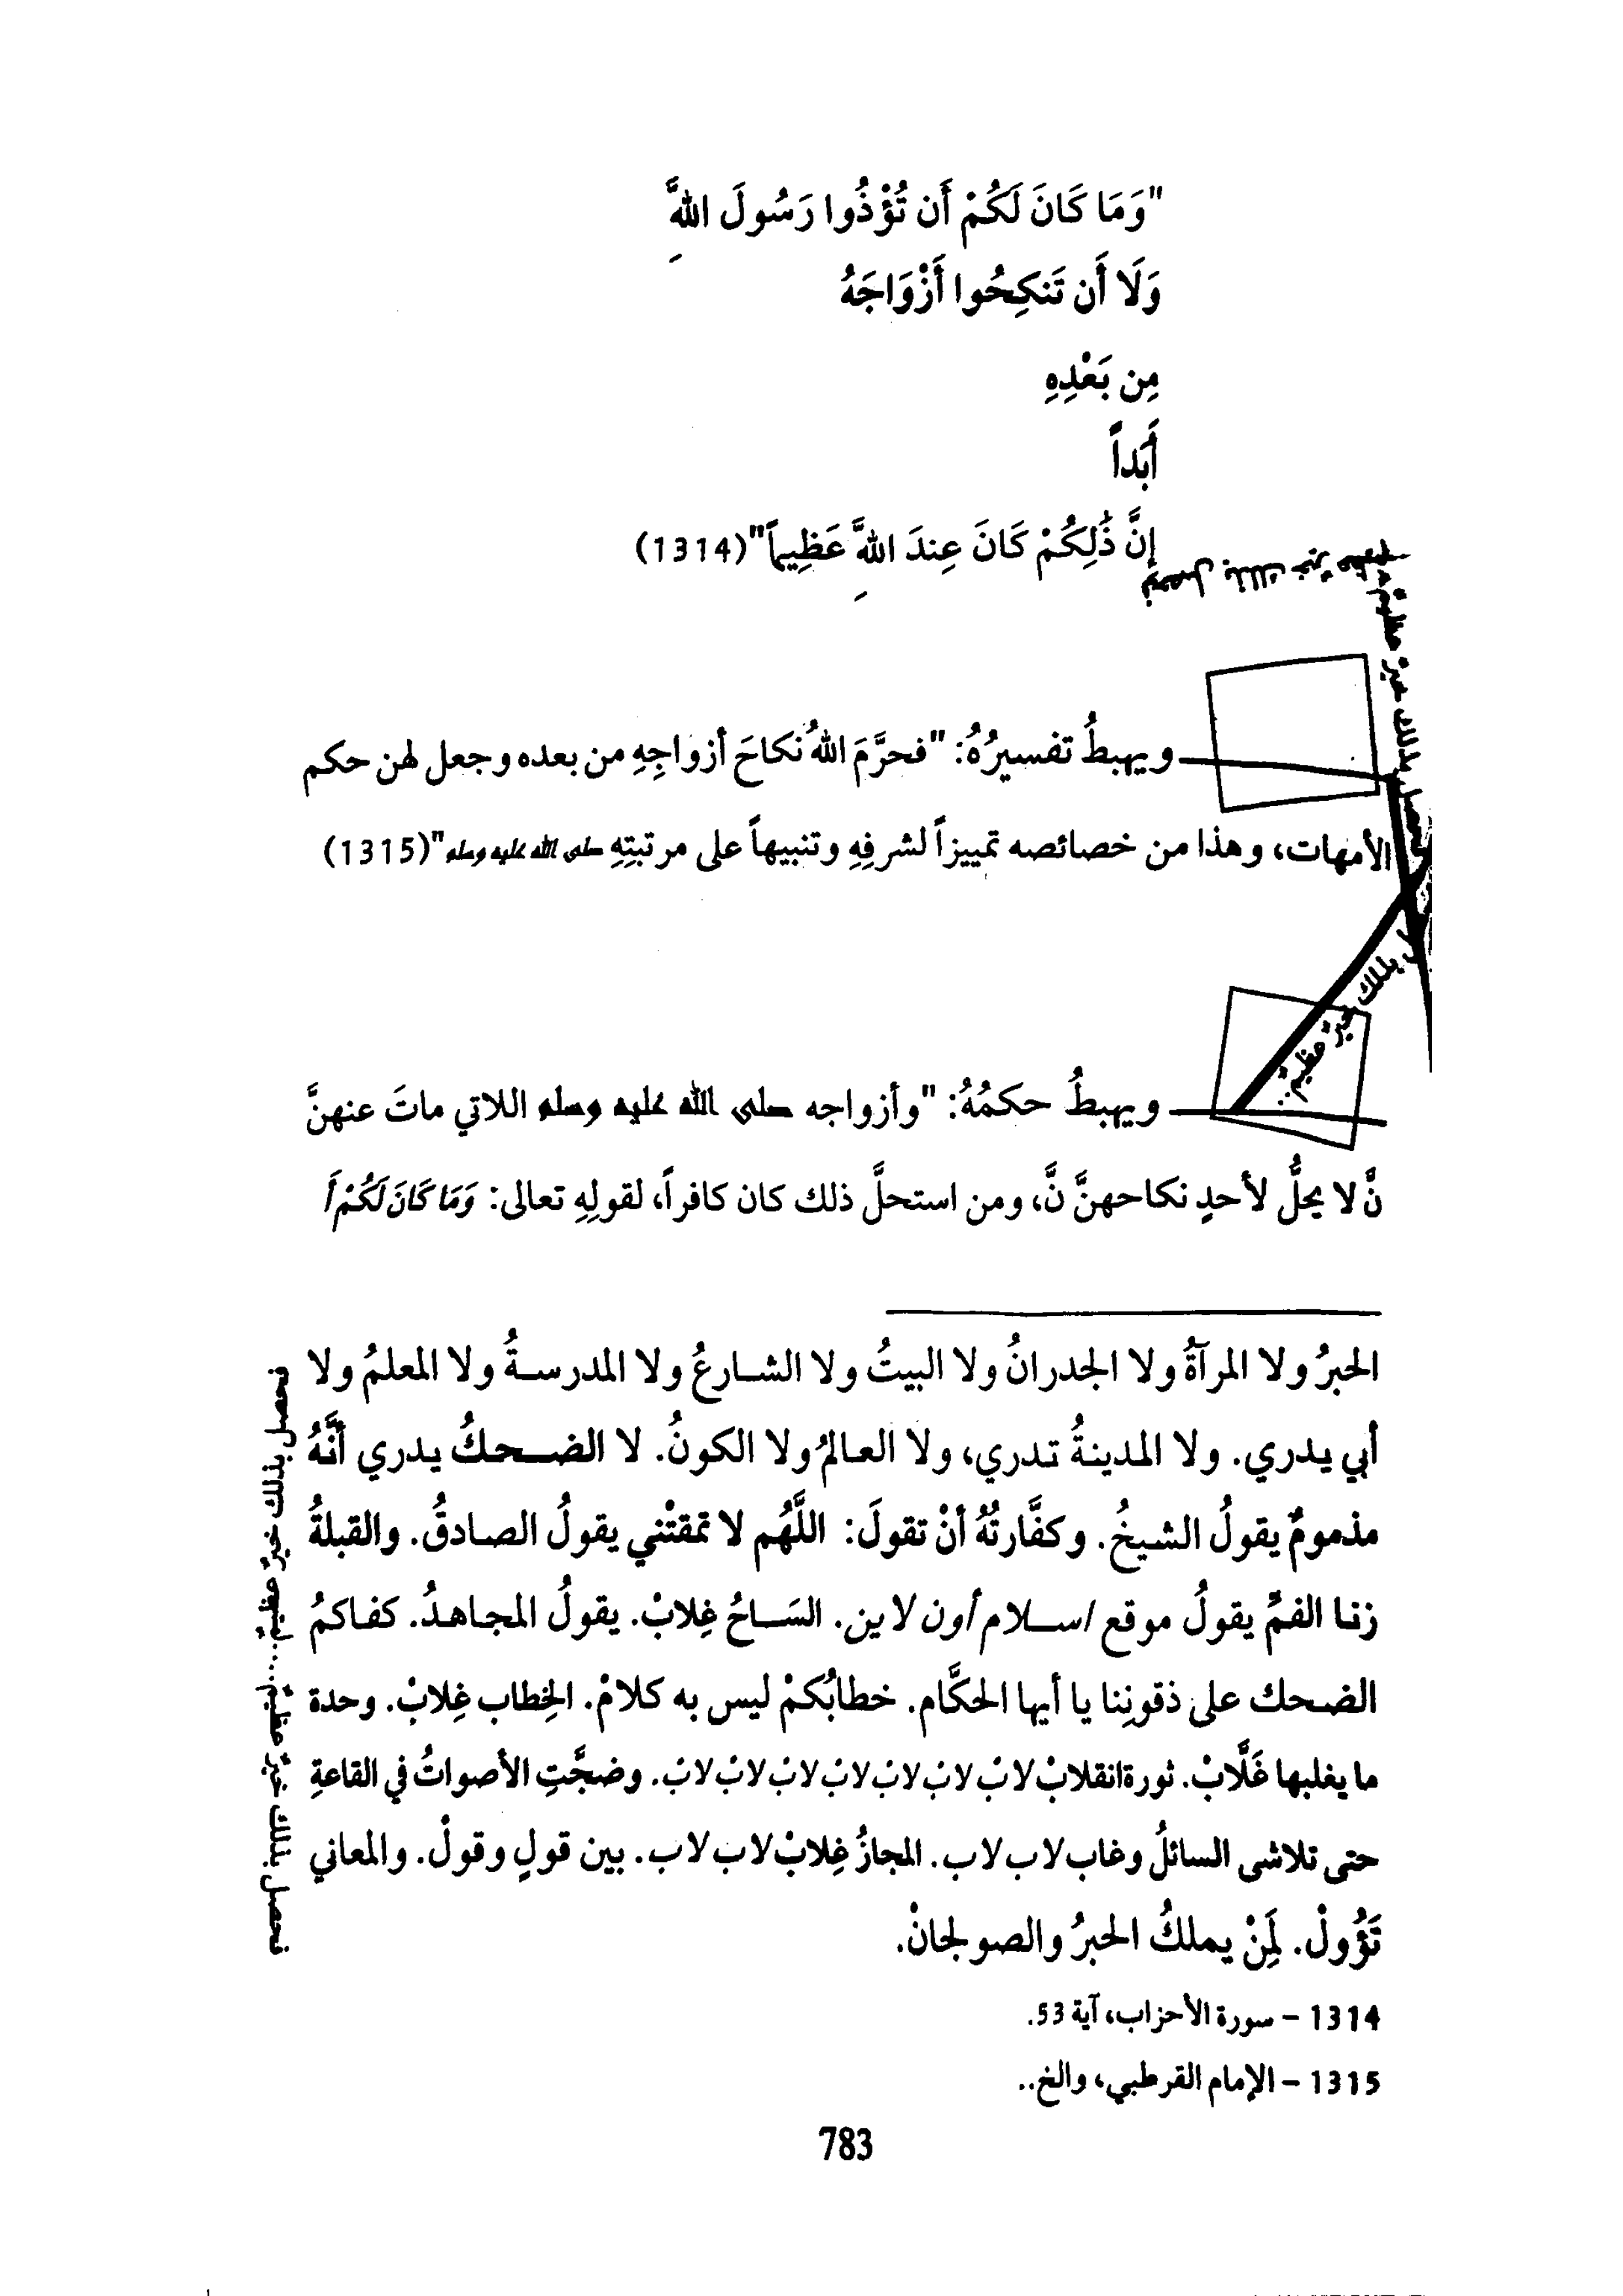 "وَمَا كَانَ لَكُمْ أَن تُؤْذُوا رَسُولَ اللهَِّ
وَلَا أَن تَنكِحُوا أَزْوَاجَهُ
مِن بَعْدِهِ
أَبَداً
إِنَّ ذَٰلِكُمْ كَانَ عِندَ اللهَِّ عَظِيماً"(1314)
فحصل بذلك خيرٌ عظيمٌ
فحصل بذلك خيرٌ عظيمٌ
ويهبطُ تفسيرُهُ: "فحرَّمَ اللهُ نكاحَ أزواجِهِ من بعده وجعل لهن حكم
الأمهات، وهذا من خصائصه تمييزاً لشرفِهِ وتنبيهاً على مرتبتِهِ صلى الله عليه وسلم"(1315)
بذلك خيرٌ عظيمٌ..
ويهبطُ حكمُهُ: "وأزواجه صلى الله عليه وسلم اللاتي ماتَ عنهنَّ
نَّ لا يحلُّ لأحدٍ نكاحهنَّ نَّ، ومن استحلَّ ذلك كان كافراً، لقولِهِ تعالى: وَمَا كَانَ لَكُمْ أَ
الحبرُ ولا المرآةُ ولا الجدرانُ ولا البيتُ ولا الشارعُ ولا المدرسةُ ولا المعلمُ ولا
أبي يدري. ولا المدينةُ تدري، ولا العالمُ ولا الكونُ. لا الضحكُ يدري أنَّهُ
مذمومٌ يقولُ الشيخُ. وكفَّارتُهُ أنْ تقولَ: اللَّهُم لا تمقتْني يقولُ الصادقُ. والقبلةُ
زنا الفمِّ يقولُ موقع اسلام أون لاين. السَاحُ غِلابْ. يقولُ المجاهدُ. كفاكمُ
الضحك على ذقونِنا يا أيها الحكَّام. خطابُكمْ ليس به كلامْ. الخِطاب غِلابْ. وحدة
ما يغلبها غَلَّابْ. ثورةانقلابْ لابْ لابْ لابْ لابْ لابْ لابْ لابْ. وضجَّتِ الأصواتُ في القاعةِ
حتى تلاشى السائلُ وغاب لاب لاب. المجازُ غِلابْ لاب لاب. بين قولٍ وقولْ. والمعاني
تَؤُولْ. لِمَنْ يملكُ الحبرُ والصولجانْ.
فحصل بذلك خيرٌ عظيمٌ.... فحصل بذلك خيرٌ
1314 – سورة الأحزاب، آية 53.
1315 – الإمام القرطبي، والخ..
783